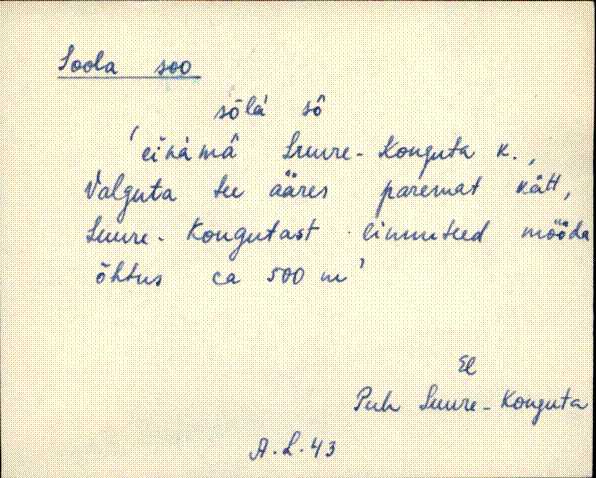 Soola soo
sōlà sô
'einämâ Suure-Konguta k.,
Valguta tee ääres paremat kätt,
Suure-Kongutast linnuteed mööda
õhtus ca 500 m'
El
Puh Suure-Konguta
A.L.43